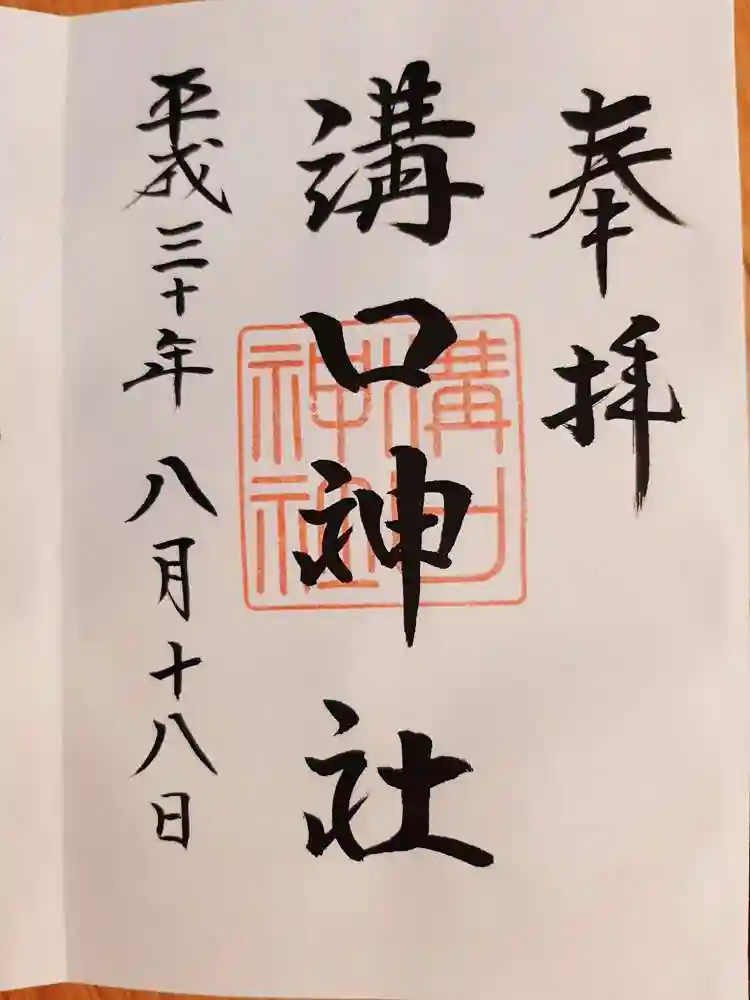 奉拝
溝口神社
溝口神社
平成三十年八月十八日